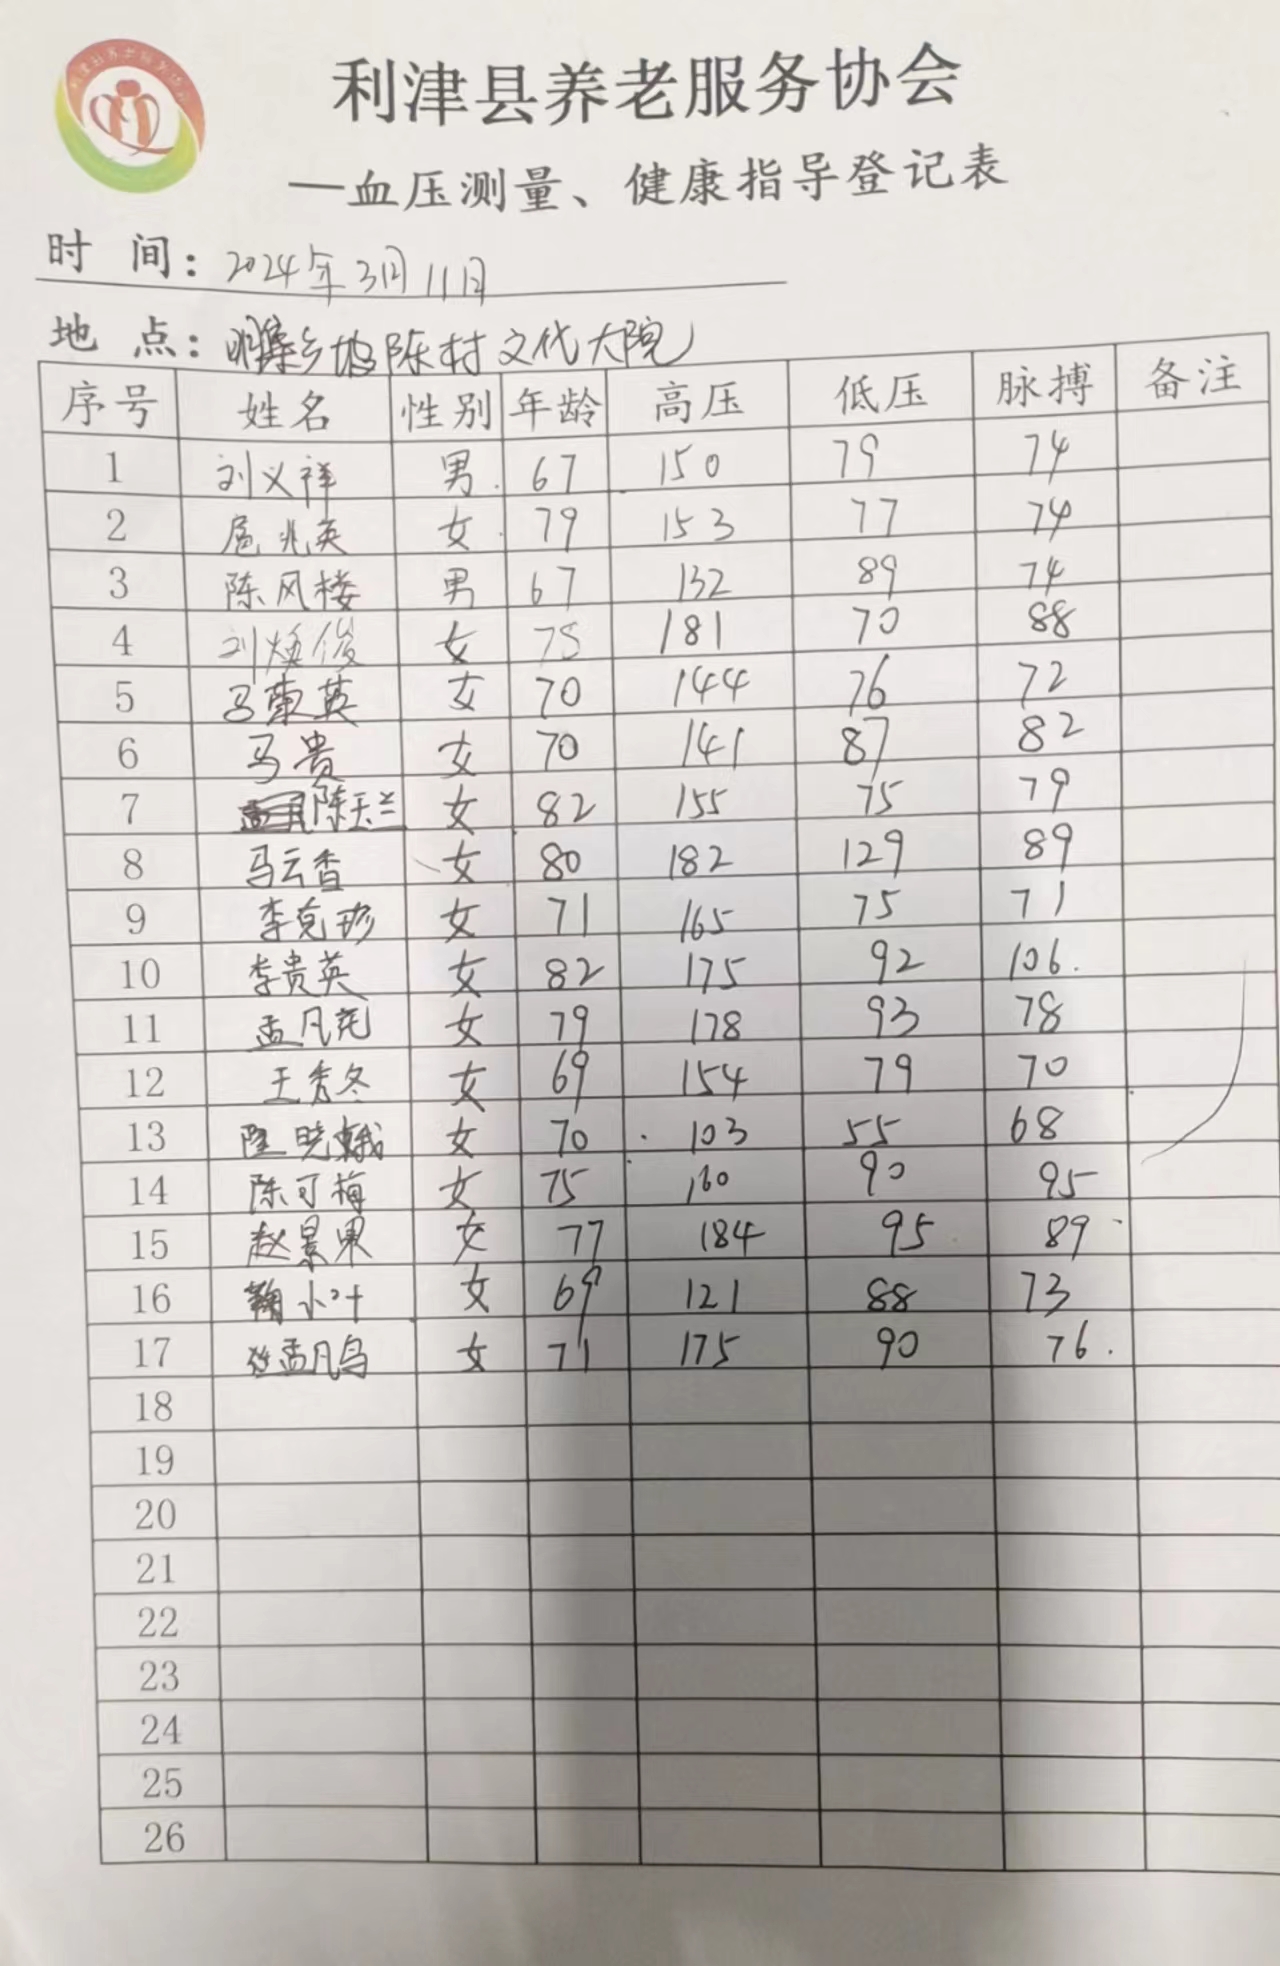 利津县养老服务协会
—血压测量、健康指导登记表
时 间：2024年3月11日
地 点：明集乡 陈村文化大院
序号 姓名 性别 年龄 高压 低压 脉搏 备注
1 刘义祥 男 67 150 79 74
2 扈兆英 女 79 153 77 74
3 陈风楼 男 67 132 89 74
4 刘焕俊 女 75 181 70 88
5 马荣英 女 70 144 76 72
6 马贵 女 70 141 87 82
7 陈玉兰 女 82 155 75 79
8 马云香 女 80 182 129 89
9 李克珍 女 71 165 75 71
10 李贵英 女 82 175 92 106
11 孟凡花 女 79 178 93 78
12 王秀冬 女 69 154 79 70
13 晓娥 女 70 103 55 68
14 陈可梅 女 75 160 90 95
15 赵景果 女 77 184 95 89
16 鞠小叶 女 69 121 88 73
17 孟凡鸟 女 71 175 90 76
18
19
20
21
22
23
24
25
26